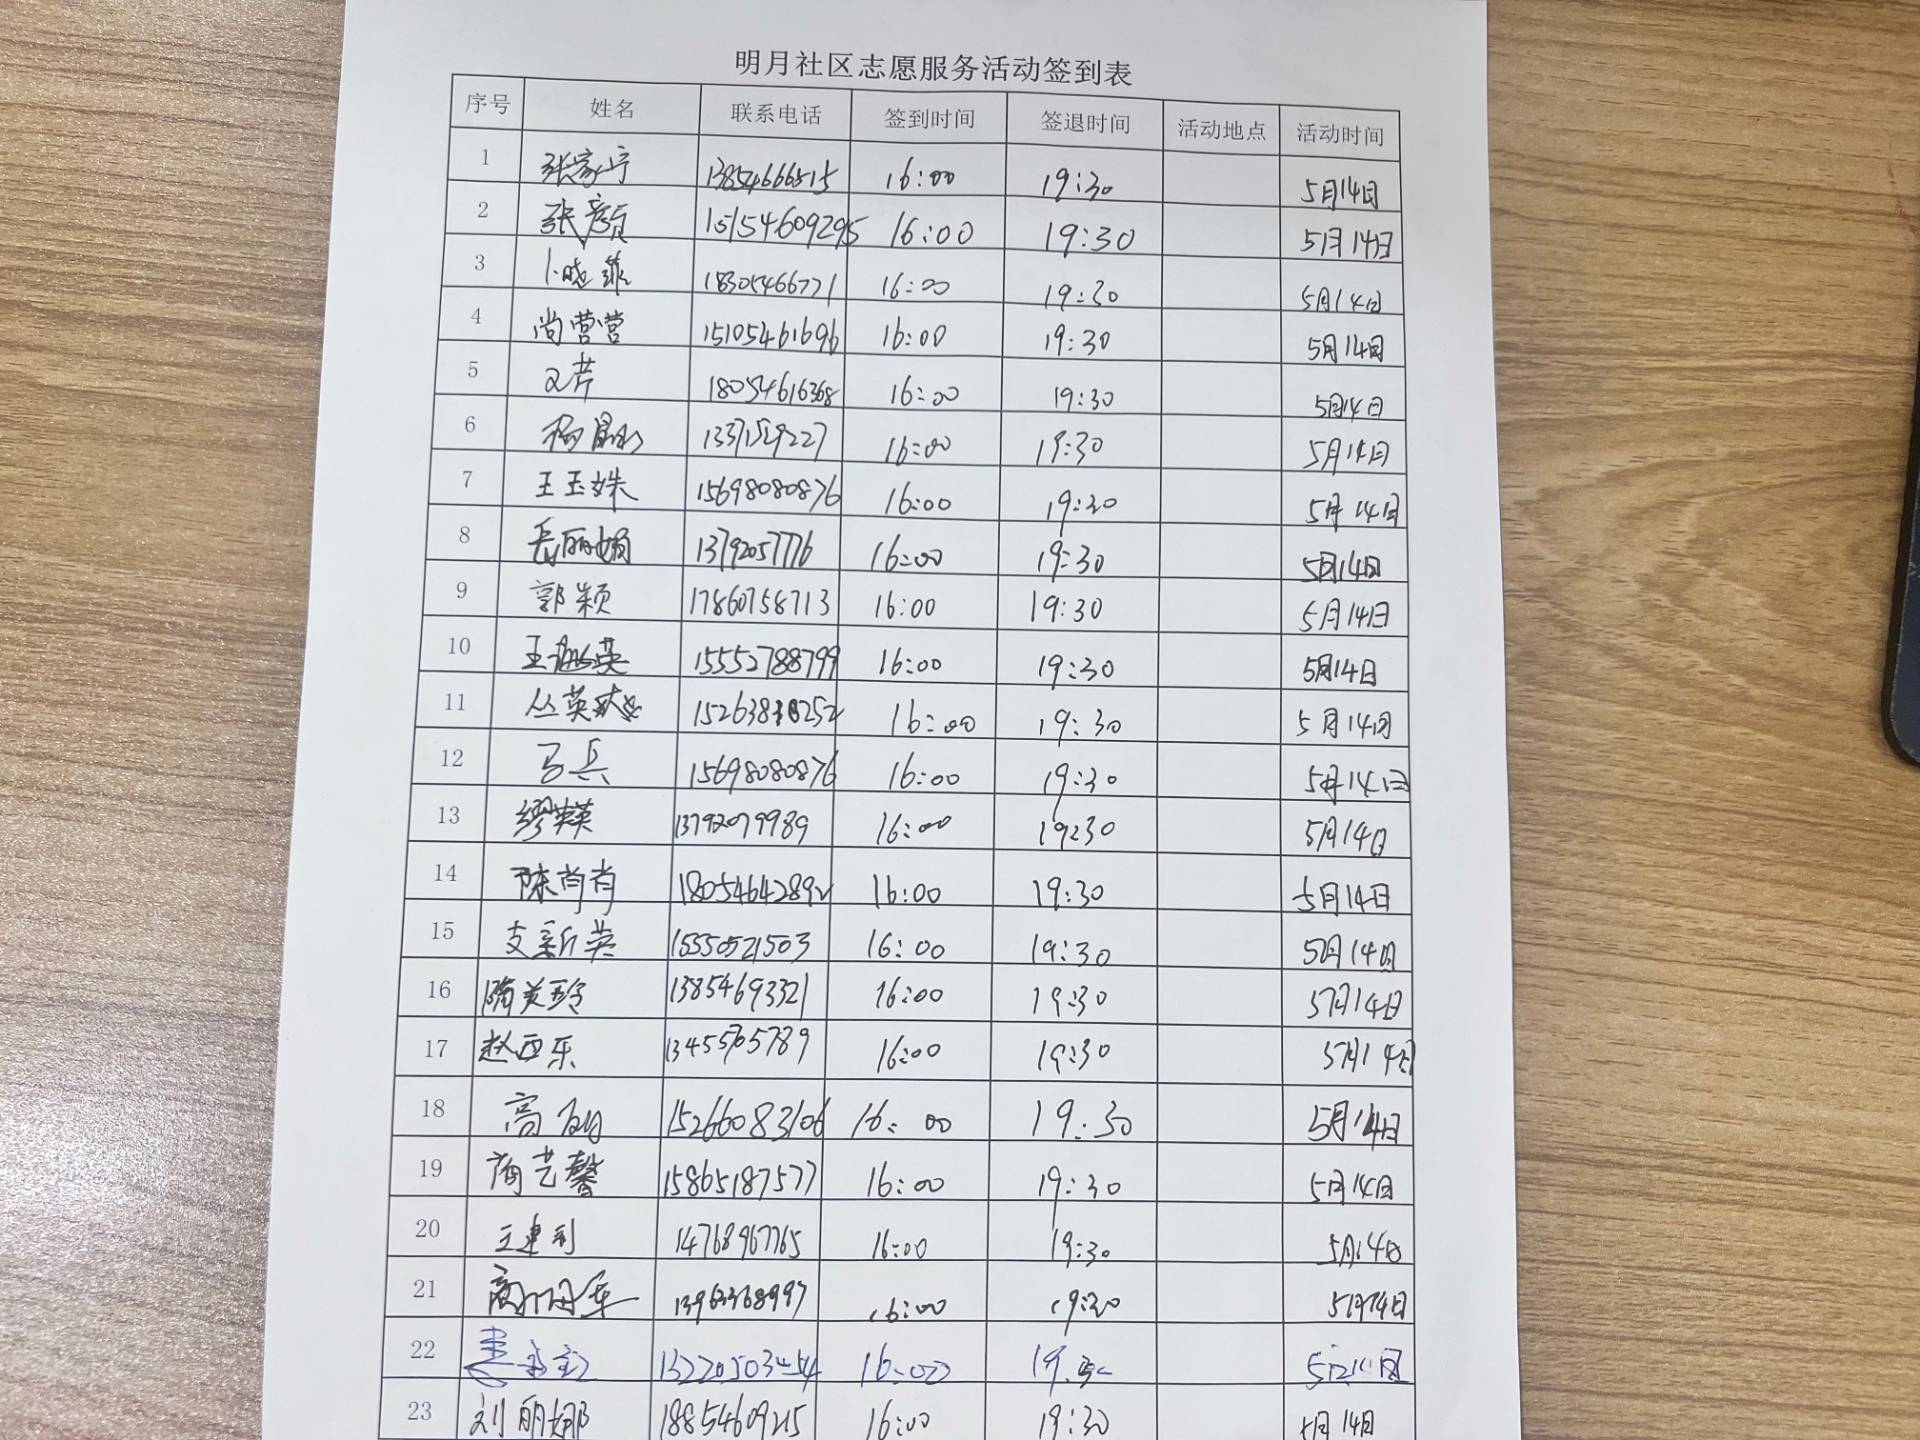 明月社区志愿服务活动签到表
序号 姓名 联系电话 签到时间 签退时间 活动地点 活动时间
1 张家宁 13854666515 16:00 19:30 5月14日
2 张颜 15154609295 16:00 19:30 5月14日
3 卜晓菲 18305466771 16:00 19:30 5月14日
4 尚营营 15105461696 16:00 19:30 5月14日
5 18054616368 16:00 19:30 5月14日
6 杨 16:00 19:30 5月14日
7 王玉姝 15698080876 16:00 19:30 5月14日
8 岳丽娟 13792057776 16:00 19:30 5月14日
9 郭颖 17860758713 16:00 19:30 5月14日
10 王 英 15552788799 16:00 19:30 5月14日
11 丛英 16:00 19:30 5月14日
12 马兵 15698080876 16:00 19:30 5月14日
13 缪 英 13792079989 16:00 19:30 5月14日
14 陈肖肖 18054642892 16:00 19:30 5月14日
15 支新英 15550521503 16:00 19:30 5月14日
16 隋美玲 13854693321 16:00 19:30 5月14日
17 赵西乐 16:00 19:30 5月14日
18 高 15266083106 16:00 19:30 5月14日
19 隋艺馨 15865187577 16:00 19:30 5月14日
20 王建利 14768967765 16:00 19:30 5月14日
21 13963368997 16:00 19:30 5月14日
22 16:00
23 刘丽娜 18854609215 16:00 19:30 5月14日